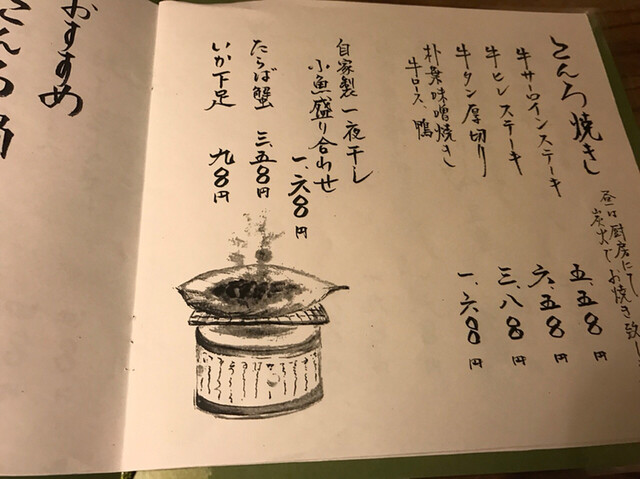 こんろ焼き
昼は厨房にて
炭火でお焼き致し
牛サーロインステーキ 五、五〇〇円
牛ヒレステーキ 六、五〇〇円
牛タン厚切り 三、八〇〇円
朴葉味噌焼き 一、六〇〇円
牛ロース、鴨
自家製一夜干し
小魚盛り合わせ 一、六〇〇円
たらば蟹 三、五〇〇円
いか下足 九八〇円
おすすめ